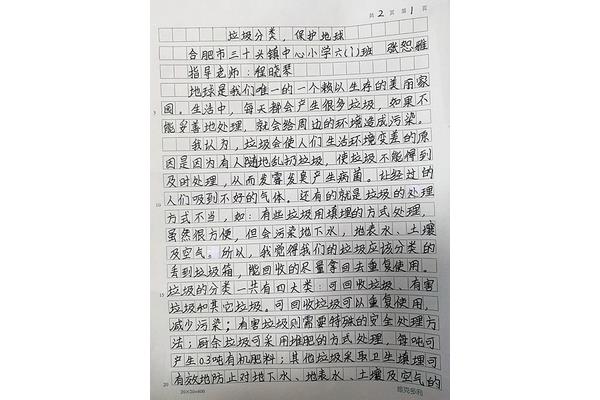 共 2 页 第 1 页
垃圾分类，保护地球
合肥市三十头镇中心小学六(1)班 张恕雅
指导老师：程晓琴
地球是我们唯一的一个赖以生存的美丽家
园。生活中，每天都会产生很多垃圾，如果不
能妥善地处理，就会给周边的环境造成污染。
我认为，垃圾会使人们生活环境变差的原
因是因为有人随地乱扔垃圾，使垃圾不能得到
及时处理，从而发霉发臭产生病菌。让经过的
人们吸到不好的气体。还有的就是垃圾的处理
方式不当，如：有些垃圾用填埋的方式处理，
虽然很方便，但会污染地下水，地表水、土壤
及空气。所以，我觉得我们的垃圾应该分类的
丢到垃圾箱，能回收的尽量拿回去重复使用。
垃圾的分类一共有四大类：可回收垃圾、有害
垃圾和其它垃圾。可回收垃圾可以重复使用，
减少污染；有害垃圾则需要特殊的安全处理方
法；厨余垃圾可采用堆肥的方式处理，每吨可
产生0.3吨有机肥料；其他垃圾采取卫生填埋可
有效地防止对地下水、地表水、土壤及空气的
5
10
15
20
20×20=400